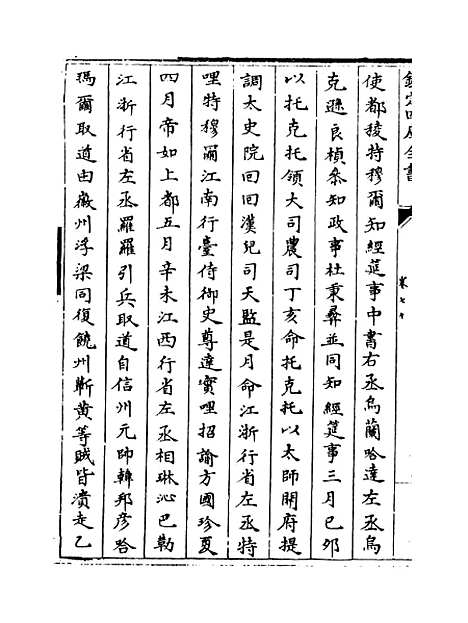 欽定四庫全書
卷七十
使都稜特穆爾知經筵事中書右丞烏蘭哈達左丞烏
克遜良楨叅知政事杜秉彞並同知經筵事三月己夘
以托克托領大司農司丁亥命托克托以太師開府提
調太史院回回漢兒司天監是月命江浙行省左丞特
哩特穆爾江南行臺侍御史尊達實哩招諭方國珍夏
四月帝如上都五月辛未江西行省左丞相琳沁巴勒
江浙行省左丞羅羅引兵取道自信州元帥韓邦彦哈
瑪爾取道由徽州浮梁同復饒州蘄黄等賊皆潰走乙